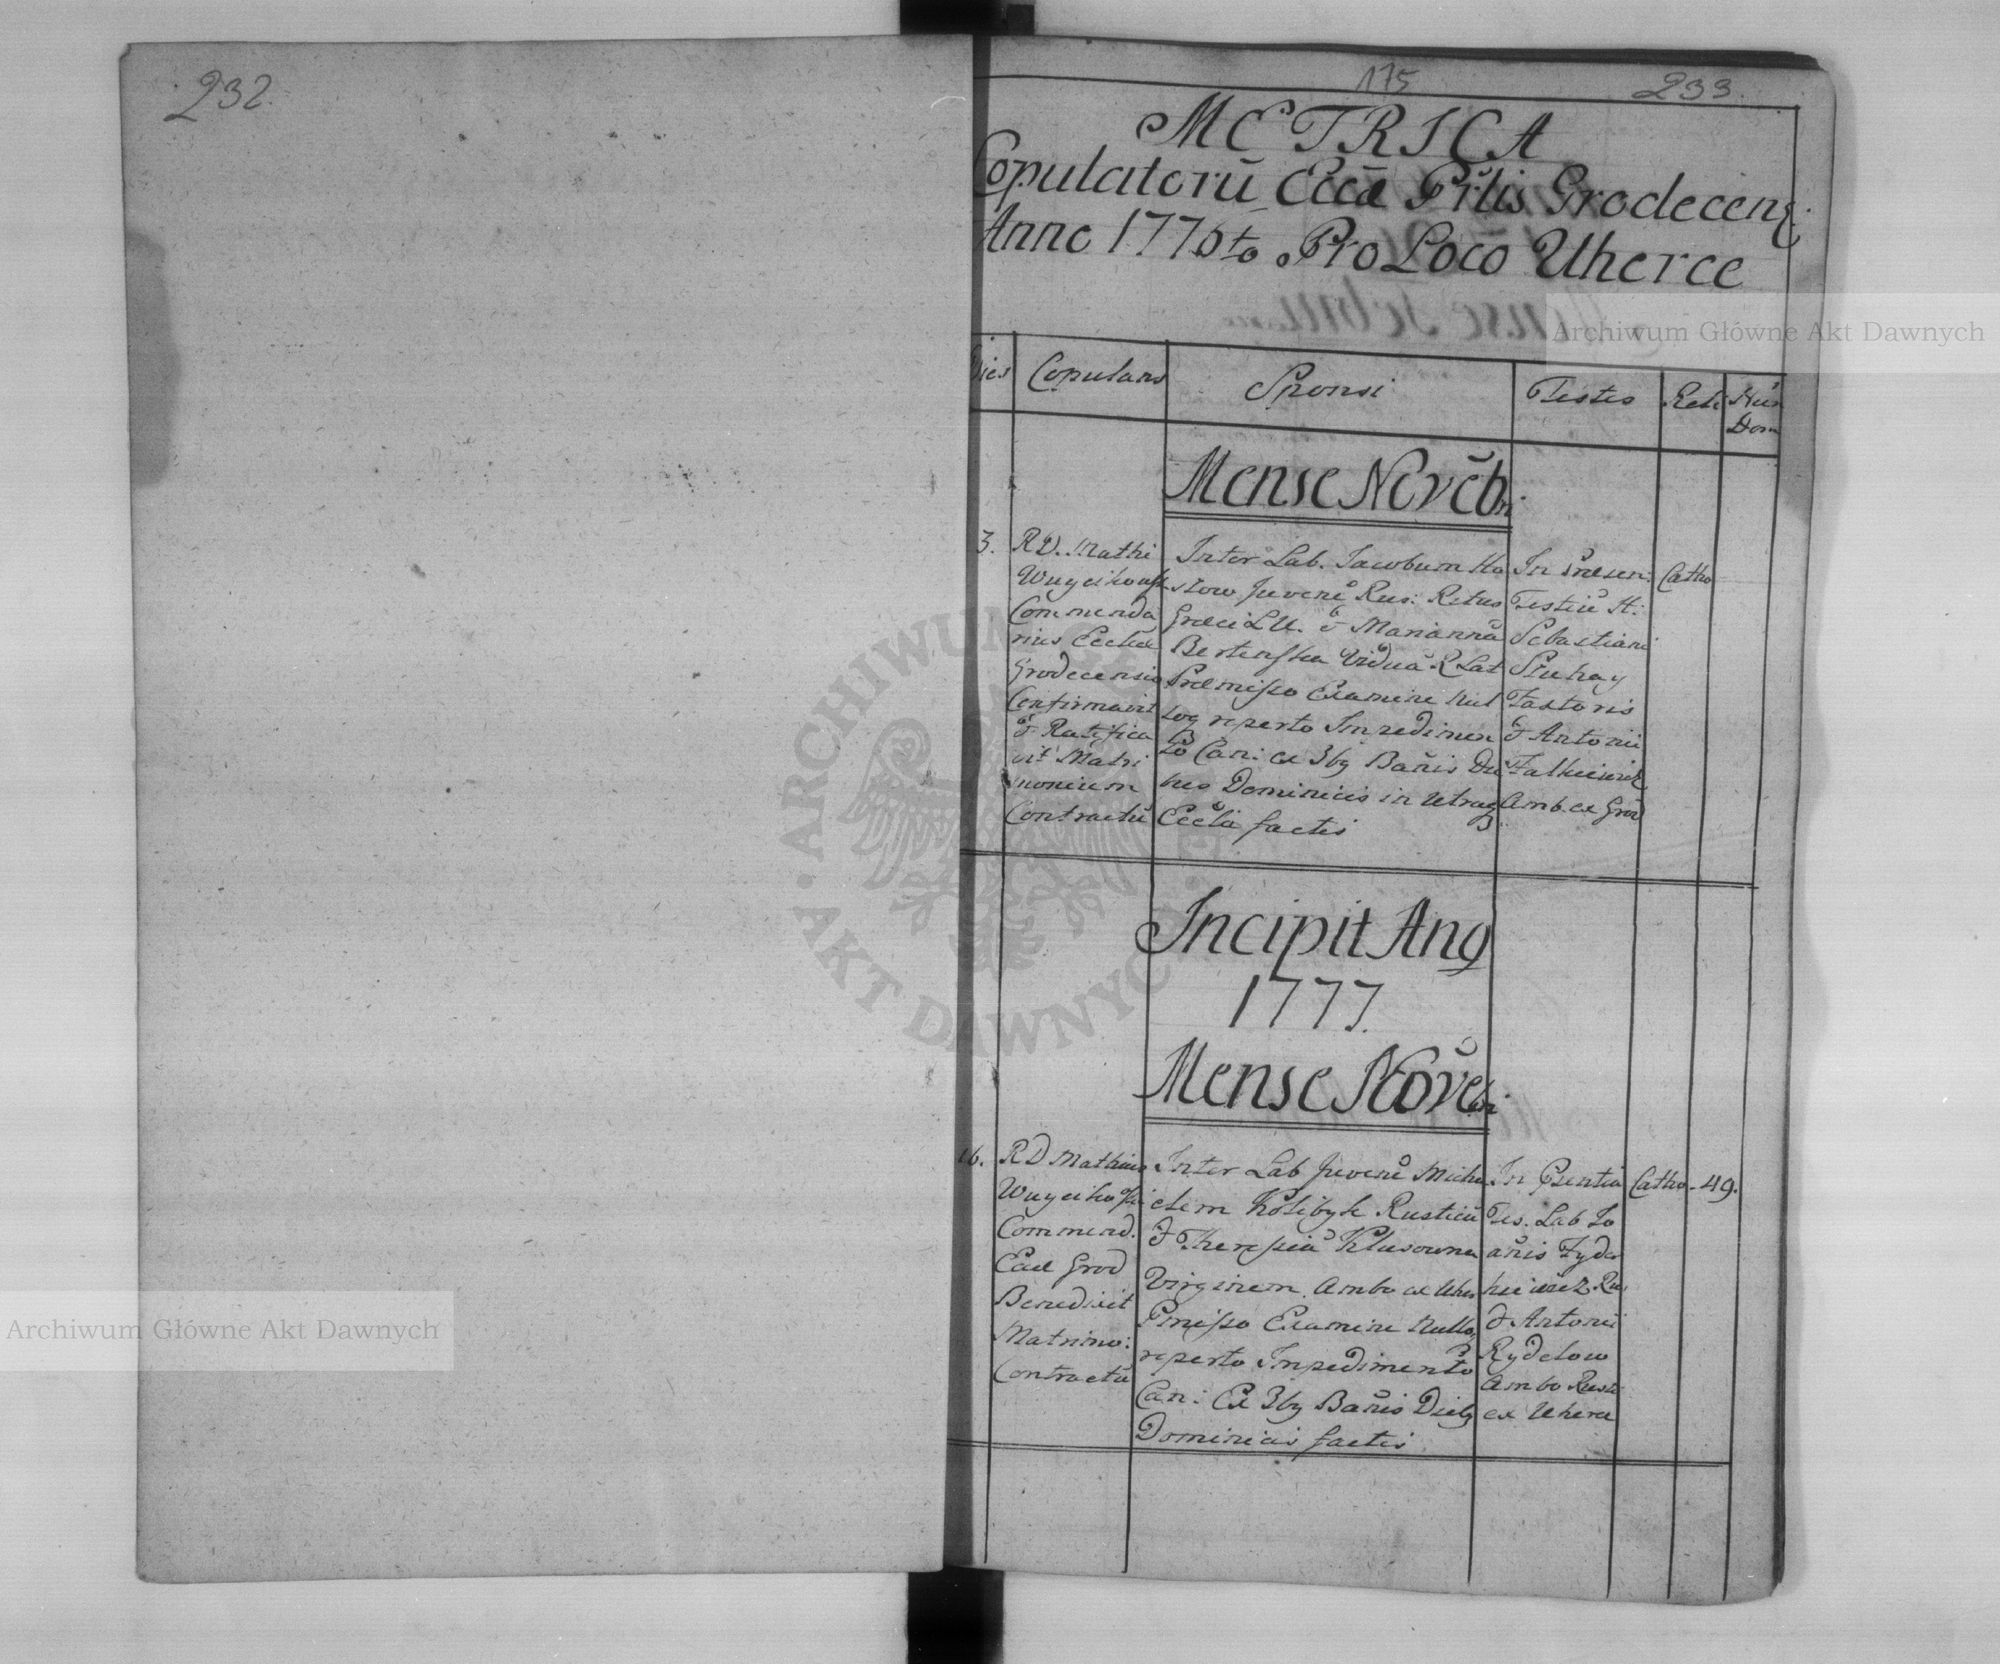 232.
175
233.
METRICA
Copulatorũ Eccæ Prlis Grodecens.
Anno 1776to Pro Loco Uherce
Dies Copulans Sponsi Testes Reli Nũs Dom
Mense Novebri
3.
R.D. Mathi
Commenda
rius Eccliæ
Grodecensis
Confirmavit
& Ratifica
vit Matri
monium
Contractũ
Inter Lab. Jacobum Ko
stow Juvenẽ Rus: Ritus
Græci & Mariannã
Viduã R Lat
Præmisso Examine Nul
loq reperto Impedimen
to Can: ex 3bq Bañis Die
bus Dominicis in Utraq
Ecclã factis
In Præsen:
Testiũ H:
Sebastiani
Pastoris
& Antonii
Amb. ex Grod
Catho
Incipit Anq
1777.
Mense Novebri
16.
R D Mathias
Commend.
Eccl Grod
Benedixit
Matrimo:
Contractũ
Inter Lab Juvenẽ Micha
elem Kolibyk Rusticũ
& Theresiã Klusowna
Virginem Ambo ex Uher
Pmisso Examine Nulloq
reperto Impedimento
Can: Ex 3bq Bañis Diebq
Dominicis factis
In Psentia
Tes. Lab Jo
añis Fyda
kiewicz Rus
& Antonii
Rydelow
Ambo Rusti
ex Uherce
Catho
49.
Archiwum Główne Akt Dawnych
Archiwum Główne Akt Dawnych
ARCHIWUM
AKT DAWNYCH